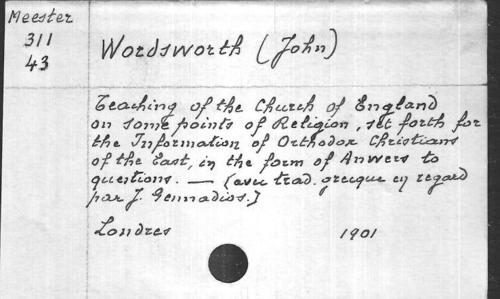 Meester
311
43
Wordsworth (John)
Teaching of the Church of England
on some points of Religion, set forth for
the Information of Orthodox Christians
of the East, in the form of Anwers to
questions. — (avec trad. grecque en regard
par J. Gennadios.)
Londres 1901